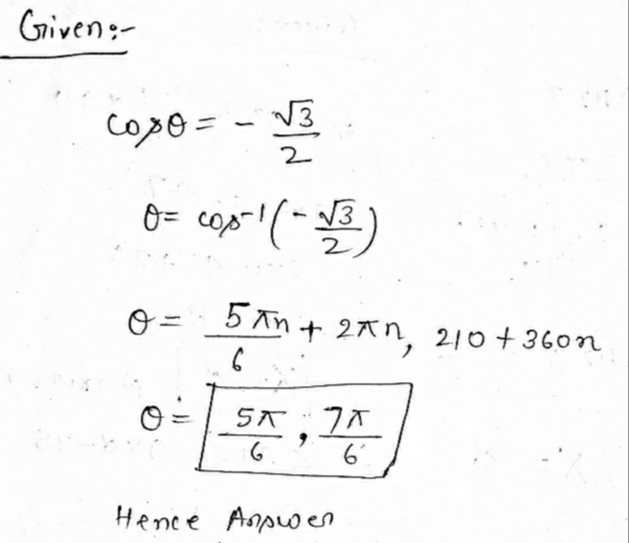 Given:-
cosθ = - √3/2
θ = cos⁻¹(-√3/2)
θ = 5πn/6 + 2πn, 210 + 360n
θ = 5π/6, 7π/6
Hence Answer